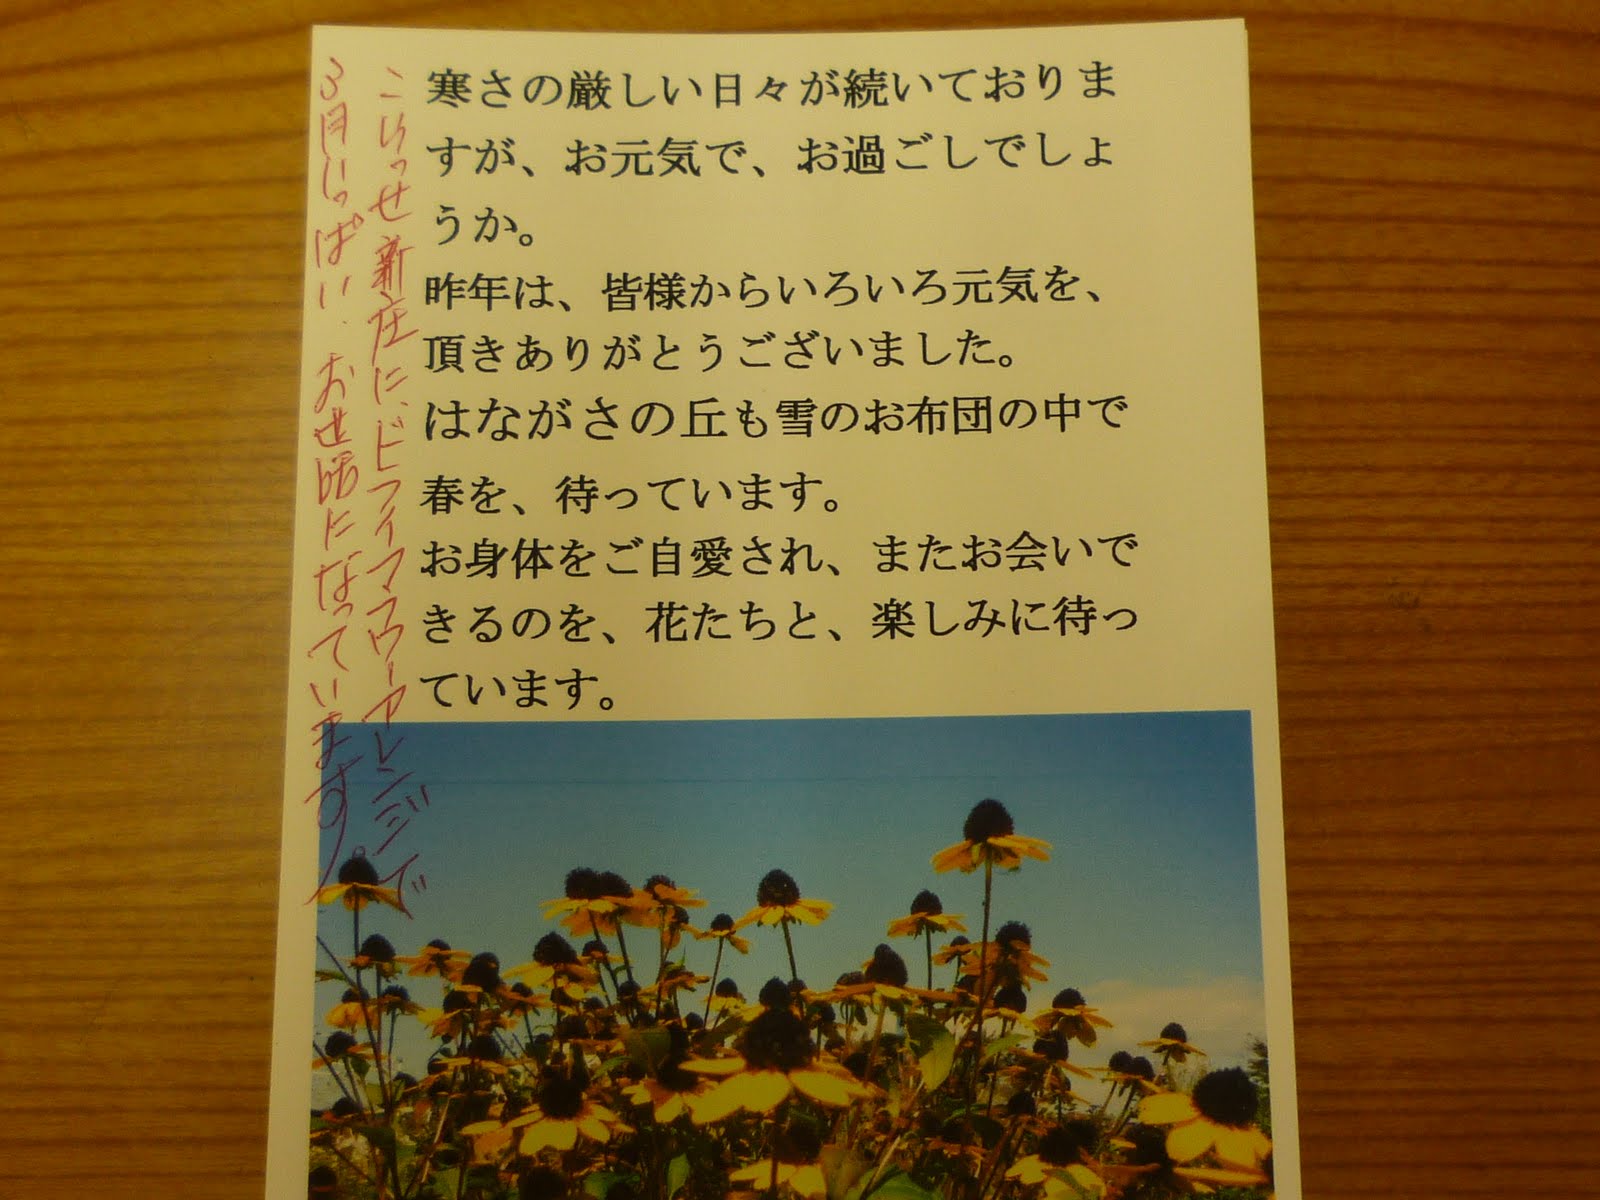 寒さの厳しい日々が続いておりま
すが、お元気で、お過ごしでしょ
うか。
昨年は、皆様からいろいろ元気を、
頂きありがとうございました。
はながさの丘も雪のお布団の中で
春を、待っています。
お身体をご自愛され、またお会いで
きるのを、花たちと、楽しみに待っ
ています。
こらっせ新庄に、ドライフラワーアレンジで
3月いっぱい、お世話になっています。